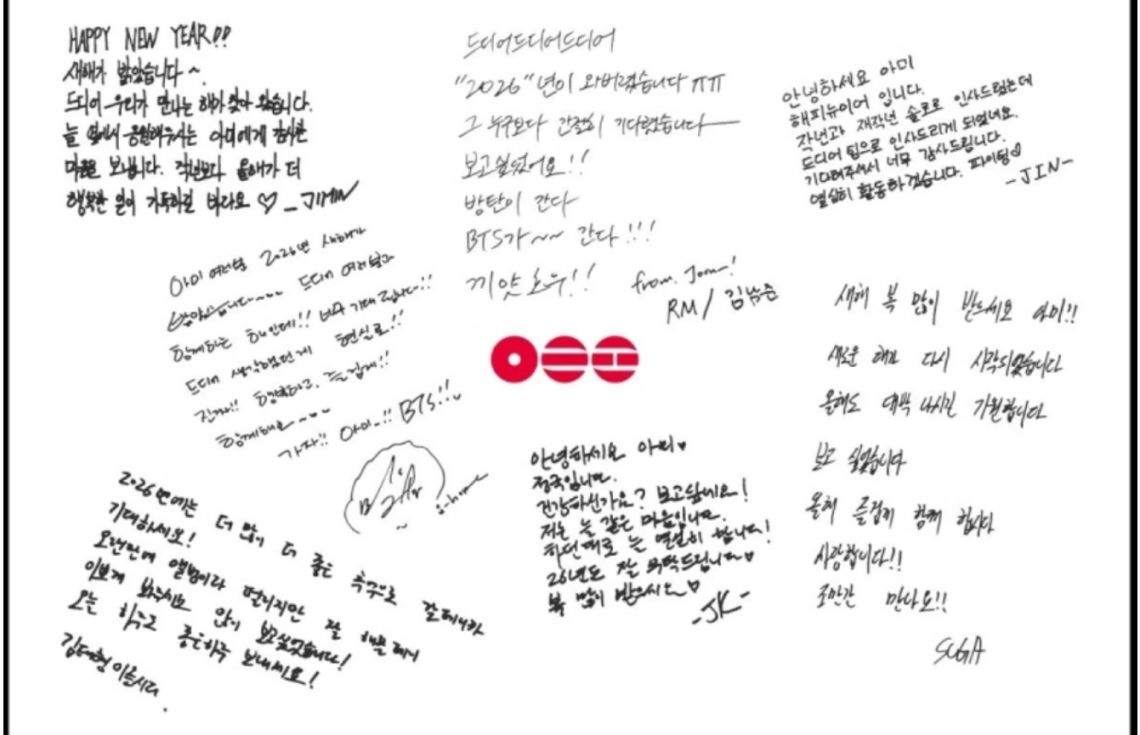 HAPPY NEW YEAR!!
새해가 밝았습니다 ~
드디어 우리가 만나는 해가 찾아 왔습니다.
늘 옆에서 응원해주시는 아미에게 감사한
마음을 보냅니다. 작년보다 올해가 더
행복한 일이 가득하길 바라요 ♡ _JIMIN
드디어드디어드디어
"2026"년이 와버렸습니다 ㅠㅠ
그 누구보다 간절히 기다렸습니다
보고싶었어요!!
방탄이 간다
BTS가~~ 간다!!!
끼얏호우!!
from. Jooni!
RM / 김남준
안녕하세요 아미
해피뉴이어 입니다.
작년과 재작년 솔로로 인사드렸는데
드디어 팀으로 인사드리게 되었네요.
기다려주셔서 너무 감사드립니다.
열심히 활동하겠습니다. 파이팅♡
-JIN-
아미 여러분 2026년 새해가
밝았습니다~~~ 드디어 여러분과
함께하는 해인데!! 너무 기대됩니다!!
드디어 생각했던게 현실로!!
진짜!! 행복하고, 즐겁게!!
함께해요~~~
가자!! 아미..!! BTS!!
j-hope
새해 복 많이 받으세요 아미!!
새로운 해가 다시 시작되었습니다
올해도 대박 나시길 기원합니다
보고 싶었습니다
올해 즐겁게 함께 합시다
사랑합니다!!
조만간 만나요!!
SUGA
2026년에는 더 많이 더 좋은 추억으로 갈테니까
기대하세요!
오랜만에 앨범이라 떨리지만 잘 해볼테니
이쁘게 봐주시요 많이 보고싶었습니다!
오늘 하루고 좋은하루 보내세요!
김태형이올시다.
안녕하세요 아미♥
정국입니다.
건강하신가요? 보고싶네요!
저는 늘 같은 마음입니다.
하던대로 늘 열심히 합니다!
26년도 잘 부탁드립니다♥
복 많이 받으시오♥
-JK-